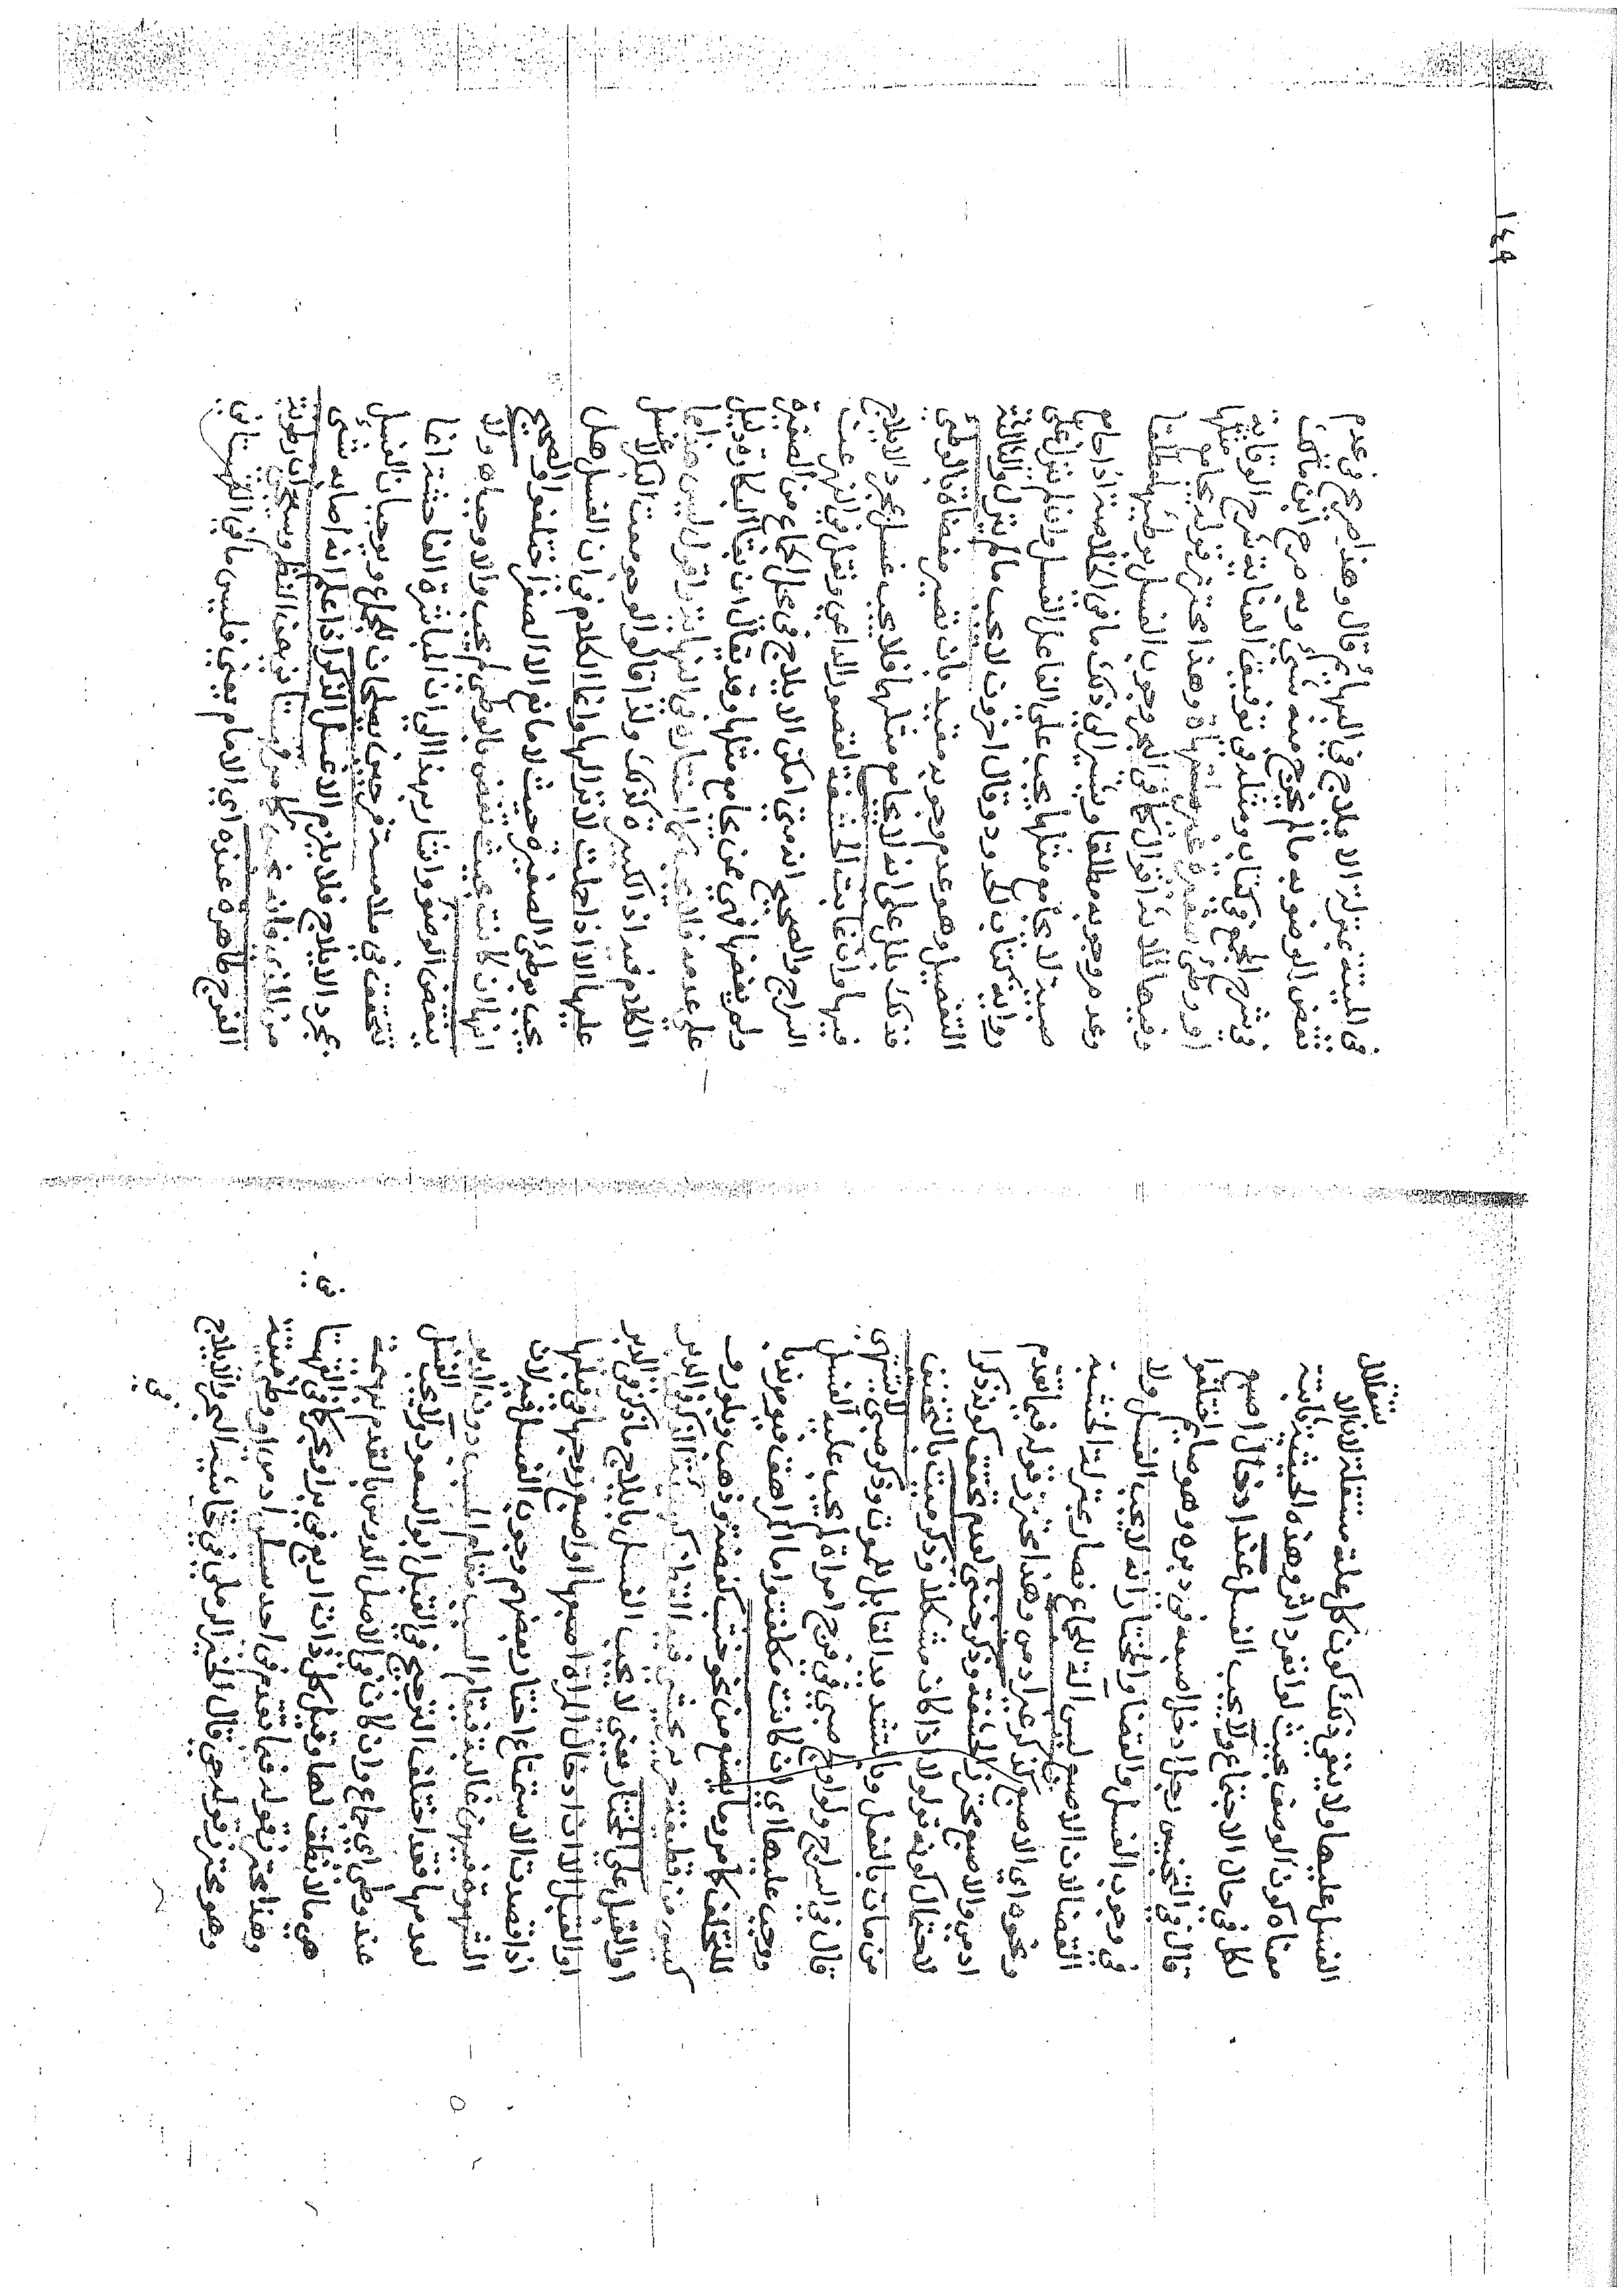 الغسل عليها ولا ينفي ذلك كون كل علة مستقلة لان الا
ستقلال
معناه كون الوصف بحيث لو انفرد اثر وهذه الحيثية ثابتة
لكل في حال الاجتماع ولا يجب الغسل عند ادخال اصبع
قال في التجنيس رجل ادخل اصبعه في دبره وهو صايم اختلفوا
في وجوب الغسل والقضا والمختار انه لا يجب الغسل ولا
القضا لان الاصبع ليس آلة للجماع فصار بمنزلة الخشبة
ونحوه اي الاصبع كذكر غير ادمي وهذا محترز قوله فيما تقدم
ادمي والاصبع محترز الحشفة وذكر خنثى لعدم تحقق كونه ذكرا
لاحتمال كونه اذا كان مشكلا وذكر ميت بالتخفيف
من مات بالفعل وبالتشديد القابل للموت وذكر صبي لا يشتهي
قال في السراج ولو اولج صبي في فرج امراة لم يجب عليه الغسل
ووجب عليها اي ان كانت مكلفة واما المراهق فيومر ندبا
للتخلق كما مر وما يصنع من نحو خشب كفضة وذهب وبلور و
من قطيفة حرير يحشى فيه القطن الذكر في الدبر
او القبل على المختار يعني لا يجب الغسل بايلاج ما ذكر في الدبر
او القبل الا ان ادخال المراة اصبعها او اصبع زوجها في قبلها
اذا قصدت الاستمتاع اختار بعضهم وجوب الغسل فيه لان
الشهوة فيهن غالبة فيقام السبب مقام المسبب دون الدبر
لعدمها فقد اختلف الترجيح في القبل ابو السعود ولا يجب الغسل
عند وطى اي جماع وان كان في الاصل الدوس بالقدم بهيمة
هي ما لا نطق لها وقيل كل ذات اربع في بر او بحر كما في القهستا
وهذا محترز قوله فيما تقدم في احد سبيلي ادمي او وطئ ميتة
وهو محترز قوله حي قال الخير الرملي في حاشية البحر والايلاج
في
١٤٩
في الميتة بمنزلة الايلاج في البهايم وقال وهذا صريح في عدم
نقض الوضو به مالم يخرج منه شي وبه صرح ابن ملك
في شرح المجمع في كتابه ومثله في توفيق العناية شرح الوقاية
او وطئ صغيرة غير مشتهاة وهذا محترز قوله يجامع مثلها
وفيها ثلاثة اقوال كما في البحر وجوب الغسل بوطئها مطلقا
وعدم وجوبه مطلقا ويشير الى ذلك ما في الخلاصة اذا جامع
صبية لا يجامع مثلها يجب على الفاعل الغسل وان لم ينزل على
رواية كتاب الحدود وقال اخرون لا يجب مالم ينزل والثالث
التفصيل وهو عدم وجوبه مقيد بان تصير مفضاة بالوطئ
فذلك يدل على انه لا يجامع مثلها فلا يجب غسل بمجرد الايلاج
فيها وان غابت الحشفة لقصور الداعي ونقل في النهر عن
السراج والصحيح انه متى امكن الايلاج في محل الجماع من الصغيرة
ولم يفضها فهي ممن يجامع مثلها وقد يقال ان بقا البكارة دليل
على عدمه فلا يجب الغسل
الكلام فيه اذ الكبيرة كذلك ولذا قالوا لو جومعت البكر لا غسل
عليها الا اذا حملت لانزالها وانما الكلام في ان الغسل هل
يجب بوطئ الصغيرة حيث لا مانع الا الصغر اختلفوا والصحيح
انها ان كانت بحيث تفضى بالوطئ لم يجب والا وجب ولا
ينتقض الوضوء واشار بهذا الى ان المباشرة الفاحشة انما
تتحقق في ملامسة فرجين يصلحان للجماع ويوجبان الغسل
بمجرد الايلاج فلا يلزم الا غسل الذكر اذا علم انه اصابه شي
من الفرج فانه نجس كما مر بعض النظر وسيجي ان رطوبة
الفرج طاهرة عنده اي الامام يعني فليس ما في القهستاني